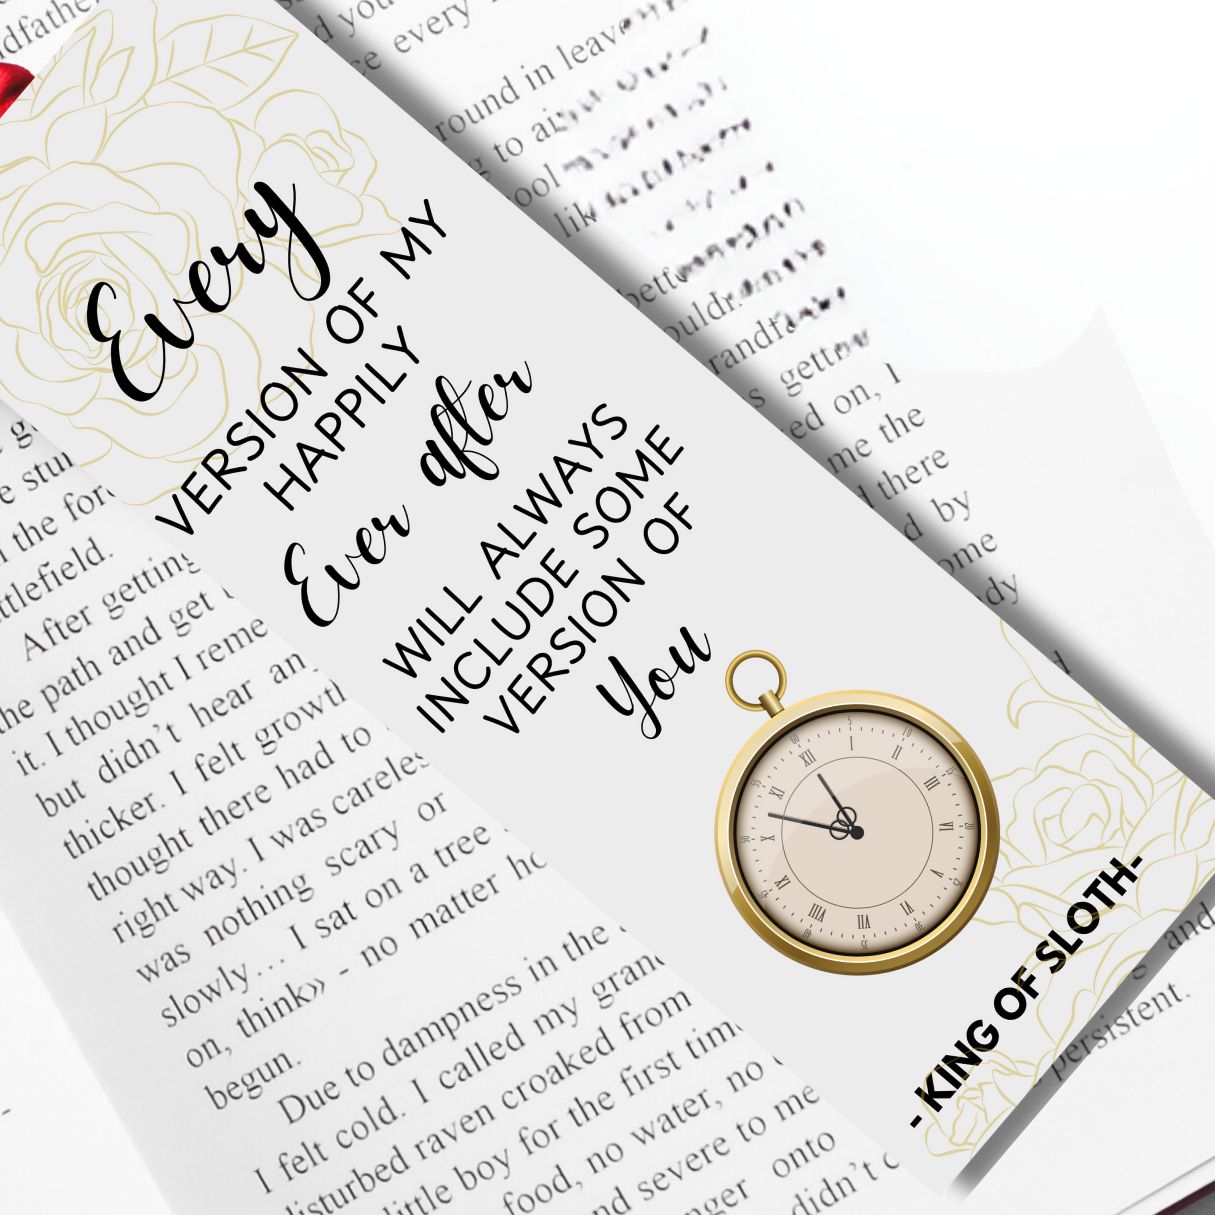 Every
VERSION OF MY
HAPPILY
Ever after
WILL ALWAYS
INCLUDE SOME
VERSION OF
You
- KING OF SLOTH-
dfather
d you
ce every
round in leav
g to ai
ool
lik
bett
ould
randf
s getting
ed on, I
me the
d there
d by
ome
dy
d
and
persistent.
e stun
n the for
ttlefield.
After getting
the path and get
it. I thought I reme
but didn't hear an
thicker. I felt growth
thought there had to
right way. I was careles
was nothing scary or
slowly… I sat on a tree
on, think» - no matter ho
begun.
Due to dampness in the
I felt cold. I called my grand
disturbed raven croaked from
little boy for the first time
food, no water, no
nd severe to me
nger onto
didn't c
XII
I
II
III
VI
V
VI
VII
VIII
IX
X
XI